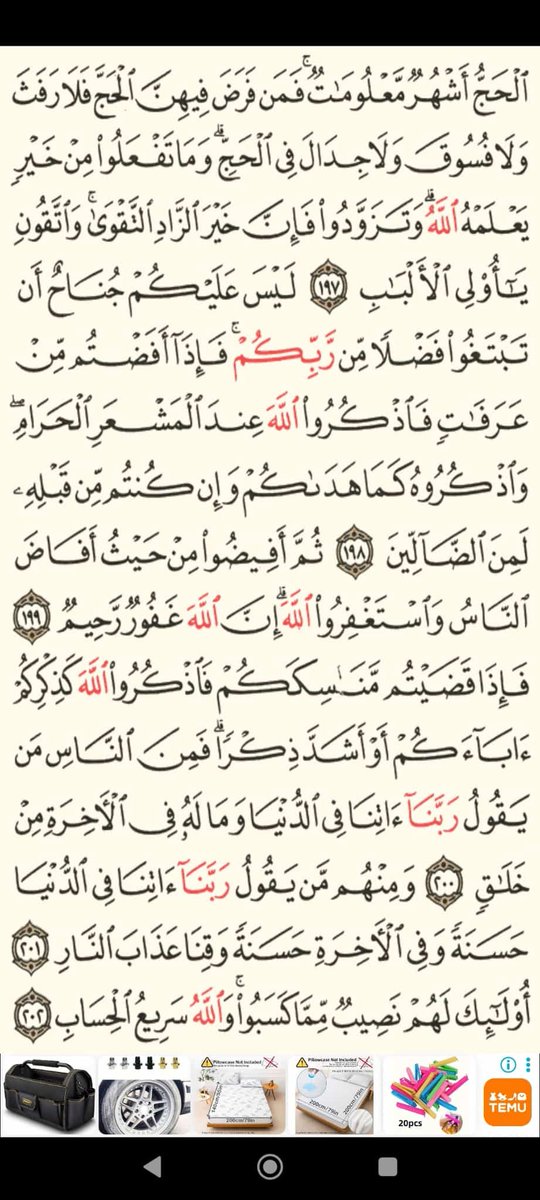 ٱلۡحَجُّ أَشۡهُرٞ مَّعۡلُومَٰتٞۚ فَمَن فَرَضَ فِيهِنَّ ٱلۡحَجَّ فَلَا رَفَثَ
وَلَا فُسُوقَ وَلَا جِدَالَ فِي ٱلۡحَجِّۗ وَمَا تَفۡعَلُواْ مِنۡ خَيۡرٖ
يَعۡلَمۡهُ ٱللَّهُۗ وَتَزَوَّدُواْ فَإِنَّ خَيۡرَ ٱلزَّادِ ٱلتَّقۡوَىٰۚ وَٱتَّقُونِ
يَٰٓأُوْلِي ٱلۡأَلۡبَٰبِ ١٩٧ لَيۡسَ عَلَيۡكُمۡ جُنَاحٌ أَن
تَبۡتَغُواْ فَضۡلٗا مِّن رَّبِّكُمۡۚ فَإِذَآ أَفَضۡتُم مِّنۡ
عَرَفَٰتٖ فَٱذۡكُرُواْ ٱللَّهَ عِندَ ٱلۡمَشۡعَرِ ٱلۡحَرَامِۖ
وَٱذۡكُرُوهُ كَمَا هَدَىٰكُمۡ وَإِن كُنتُم مِّن قَبۡلِهِۦ
لَمِنَ ٱلضَّآلِّينَ ١٩٨ ثُمَّ أَفِيضُواْ مِنۡ حَيۡثُ أَفَاضَ
ٱلنَّاسُ وَٱسۡتَغۡفِرُواْ ٱللَّهَۚ إِنَّ ٱللَّهَ غَفُورٞ رَّحِيمٞ ١٩٩
فَإِذَا قَضَيۡتُم مَّنَٰسِكَكُمۡ فَٱذۡكُرُواْ ٱللَّهَ كَذِكۡرِكُمۡ
ءَابَآءَكُمۡ أَوۡ أَشَدَّ ذِكۡرٗاۗ فَمِنَ ٱلنَّاسِ مَن
يَقُولُ رَبَّنَآ ءَاتِنَا فِي ٱلدُّنۡيَا وَمَا لَهُۥ فِي ٱلۡأٓخِرَةِ مِنۡ
خَلَٰقٖ ٢٠٠ وَمِنۡهُم مَّن يَقُولُ رَبَّنَآ ءَاتِنَا فِي ٱلدُّنۡيَا
حَسَنَةٗ وَفِي ٱلۡأٓخِرَةِ حَسَنَةٗ وَقِنَا عَذَابَ ٱلنَّارِ ٢٠١
أُوْلَٰٓئِكَ لَهُمۡ نَصِيبٞ مِّمَّا كَسَبُواْۚ وَٱللَّهُ سَرِيعُ ٱلۡحِسَابِ ٢٠٢
Pillowcase Not Included
200cm/79in
Pillowcase Not Included
200cm/79in
200cm/79in
20pcs
TEMU